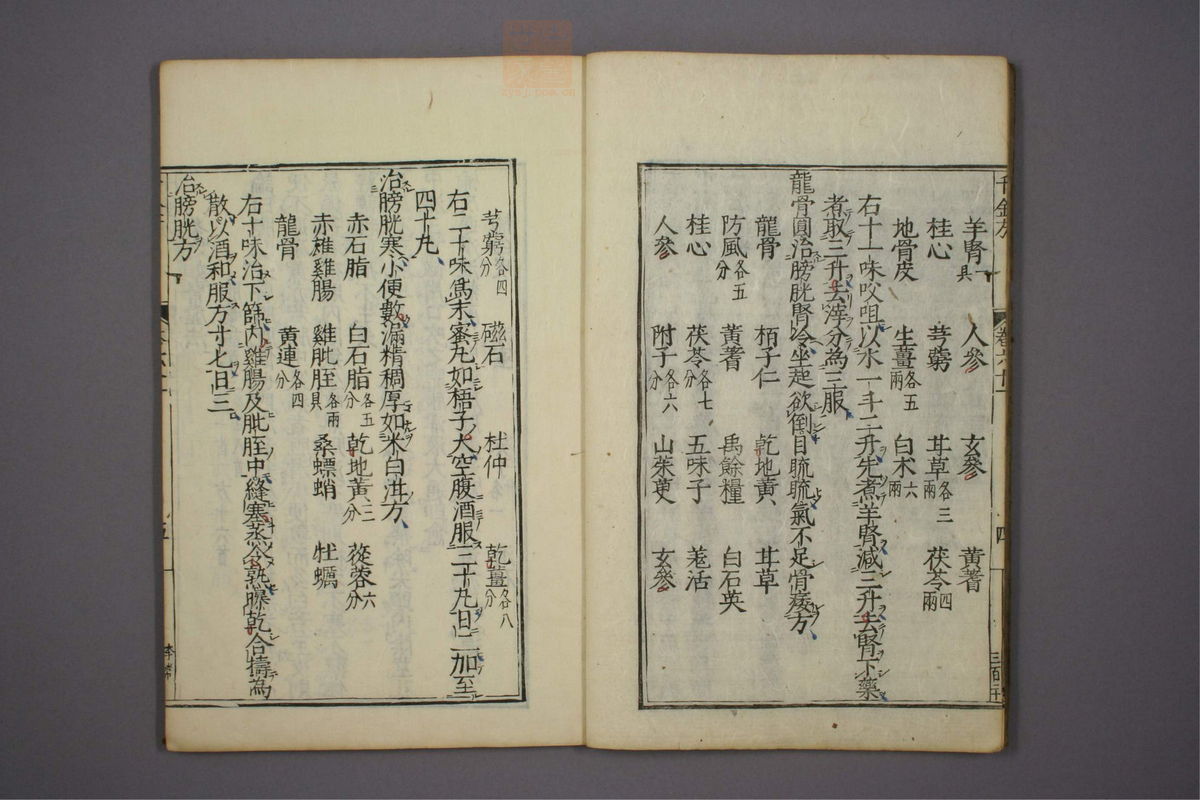 羊腎一具 人參 玄參 黃蓍
桂心 芎藭 甘草各三兩 茯苓四兩
地骨皮 生薑各五兩 白朮六兩
右十一味㕮咀以水一斗二升先煮羊腎減三升去腎下藥
煮取三升去滓分為三服
龍骨圓治膀胱腎冷坐起欲倒目䀮䀮氣不足骨痿方
龍骨 栢子仁 乾地黃 甘草
防風各五分 黃蓍 禹餘糧 白石英
桂心 茯苓各七分 五味子 羗活
人參 附子各六分 山茱萸 玄參
芎藭各四分 磁石 杜仲 乾薑各八分
右二十味為末蜜丸如梧子大空腹酒服三十丸日二加至
四十丸
治膀胱寒小便數漏精稠厚如米白泔方
赤石脂 白石脂各五分 乾地黃二分 蓯蓉六分
赤雄雞腸 雞肶胵各兩具 桑螵蛸 牡蠣
龍骨 黃連各四分
右十味治下篩內雞腸及肶胵中縫塞蒸令熟曝乾合擣為
散以酒和服方寸匕日三
治膀胱方
千金方
卷六十一
四
五